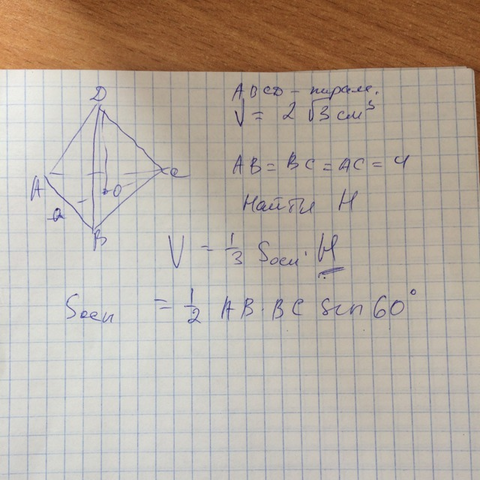 D
A
O
C
a
B
ABCD - пирам.
V = 2 √3 см³
AB = BC = AC = 4
Найти H
V = 1/3 Sосн · H
Sосн = 1/2 AB · BC sin 60°